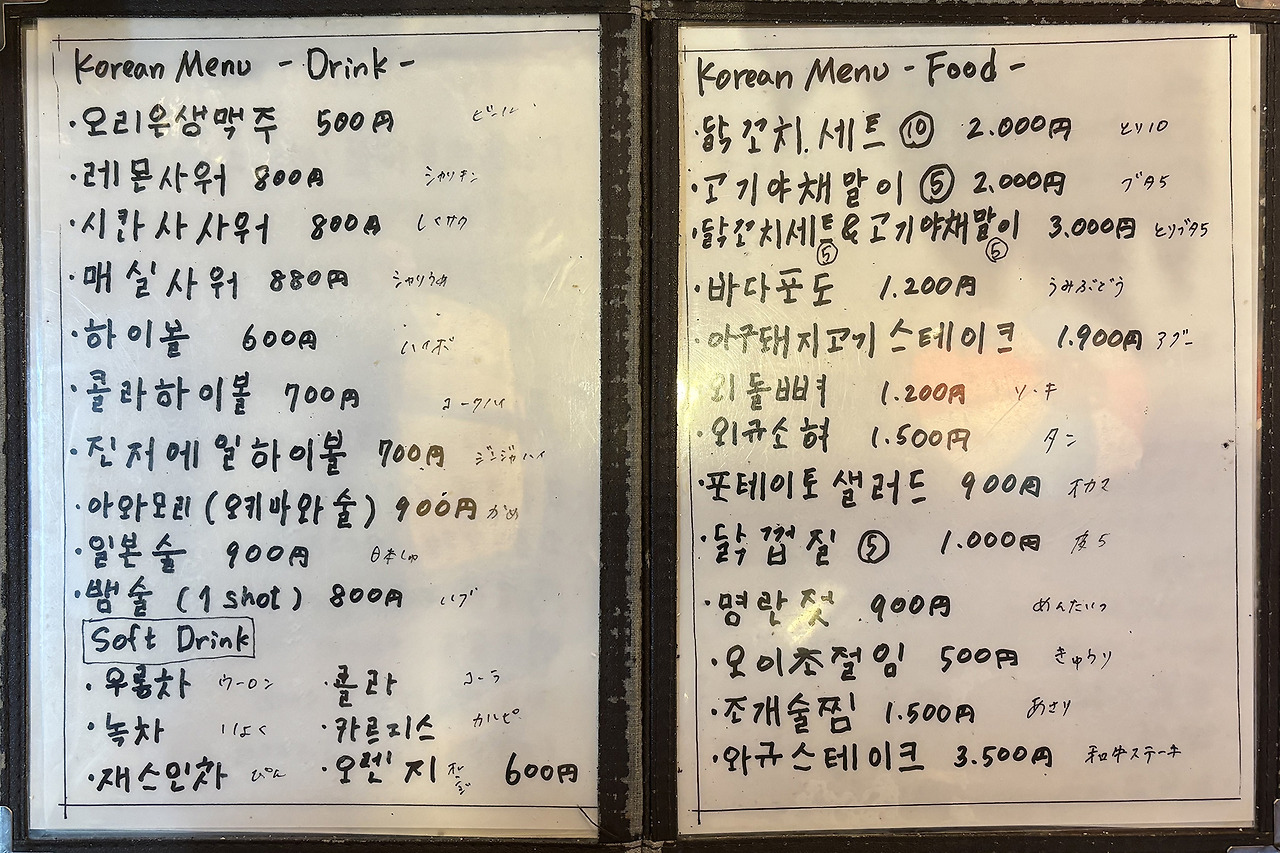 Korean Menu - Drink -
·오리온생맥주 500円 ビール
·레몬사워 800円 シャリキン
·시콰사사워 800円 しくサワ
·매실사워 880円 シャリうめ
·하이볼 600円 ハイボ
·콜라하이볼 700円 コークハイ
·진저에일하이볼 700円 ジンジャハイ
·아와모리(오키나와술) 900円 がめ
·일본술 900円 日本しゅ
·뱀술 (1 shot) 800円 ハブ
Soft Drink
·우롱차 ウーロン ·콜라 コーラ
·녹차 りょく ·카르피스 カルピ
·재스민차 ぴん ·오렌지 オレンジ 600円
Korean Menu - Food -
·닭꼬치.세트 ⑩ 2.000円 とり10
·고기야채말이 ⑤ 2.000円 ブタ5
·닭꼬치세트&고기야채말이 3.000円 とりブタ5
⑤ ⑤
·바다포도 1.200円 うみぶどう
·아구돼지고기 스테이크 1.900円 アグー
·외돌뼈 1.200円 ソーキ
·외규소혀 1.500円 タン
·포테이토 샐러드 900円 オカマ
·닭껍질 ⑤ 1.000円 皮5
·명란젓 900円 めんたいっ
·오이초절임 500円 きゅうり
·조개술찜 1.500円 あさり
·와규스테이크 3.500円 和牛ステーキ